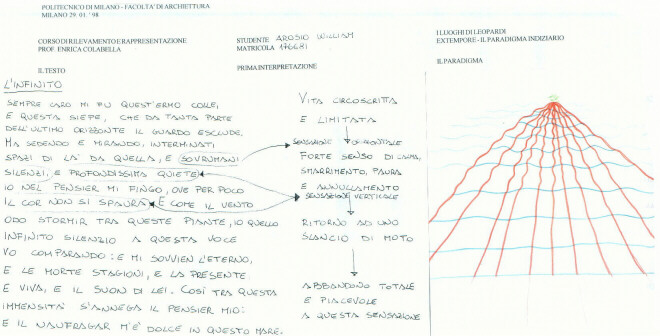 POLITECNICO DI MILANO - FACOLTA' DI ARCHIETTURA
MILANO 29. 01. '98
CORSO DI RILEVAMENTO E RAPPRESENTAZIONE
PROF. ENRICA COLABELLA
STUDENTE AROSIO WILLIAM
MATRICOLA 176681
I LUOGHI DI LEOPARDI
EXTEMPORE - IL PARADIGMA INDIZIARIO
IL TESTO
PRIMA INTERPRETAZIONE
IL PARADIGMA
L'INFINITO
SEMPRE CARO MI FU QUEST'ERMO COLLE,
E QUESTA SIEPE, CHE DA TANTA PARTE
DELL'ULTIMO ORIZZONTE IL GUARDO ESCLUDE.
MA SEDENDO E MIRANDO, INTERMINATI
SPAZI DI LÀ DA QUELLA, E SOVRUMANI
SILENZI, E PROFONDISSIMA QUIETE
IO NEL PENSIER MI FINGO, OVE PER POCO
IL COR NON SI SPAURA. E COME IL VENTO
ODO STORMIR TRA QUESTE PIANTE, IO QUELLO
INFINITO SILENZIO A QUESTA VOCE
VO COMPARANDO: E MI SOVVIEN L'ETERNO,
E LE MORTE STAGIONI, E LA PRESENTE
E VIVA, E IL SUON DI LEI. COSÌ TRA QUESTA
IMMENSITÀ S'ANNEGA IL PENSIER MIO:
E IL NAUFRAGAR M'È DOLCE IN QUESTO MARE.
VITA CIRCOSCRITTA
E LIMITATA
SENSAZIONE ORIZZONTALE
FORTE SENSO DI CALMA,
SMARRIMENTO, PAURA
E ANNULLAMENTO
SENSAZIONE VERTICALE
RITORNO AD UNO
SLANCIO DI MOTO
ABBANDONO TOTALE
E PIACEVOLE
A QUESTA SENSAZIONE